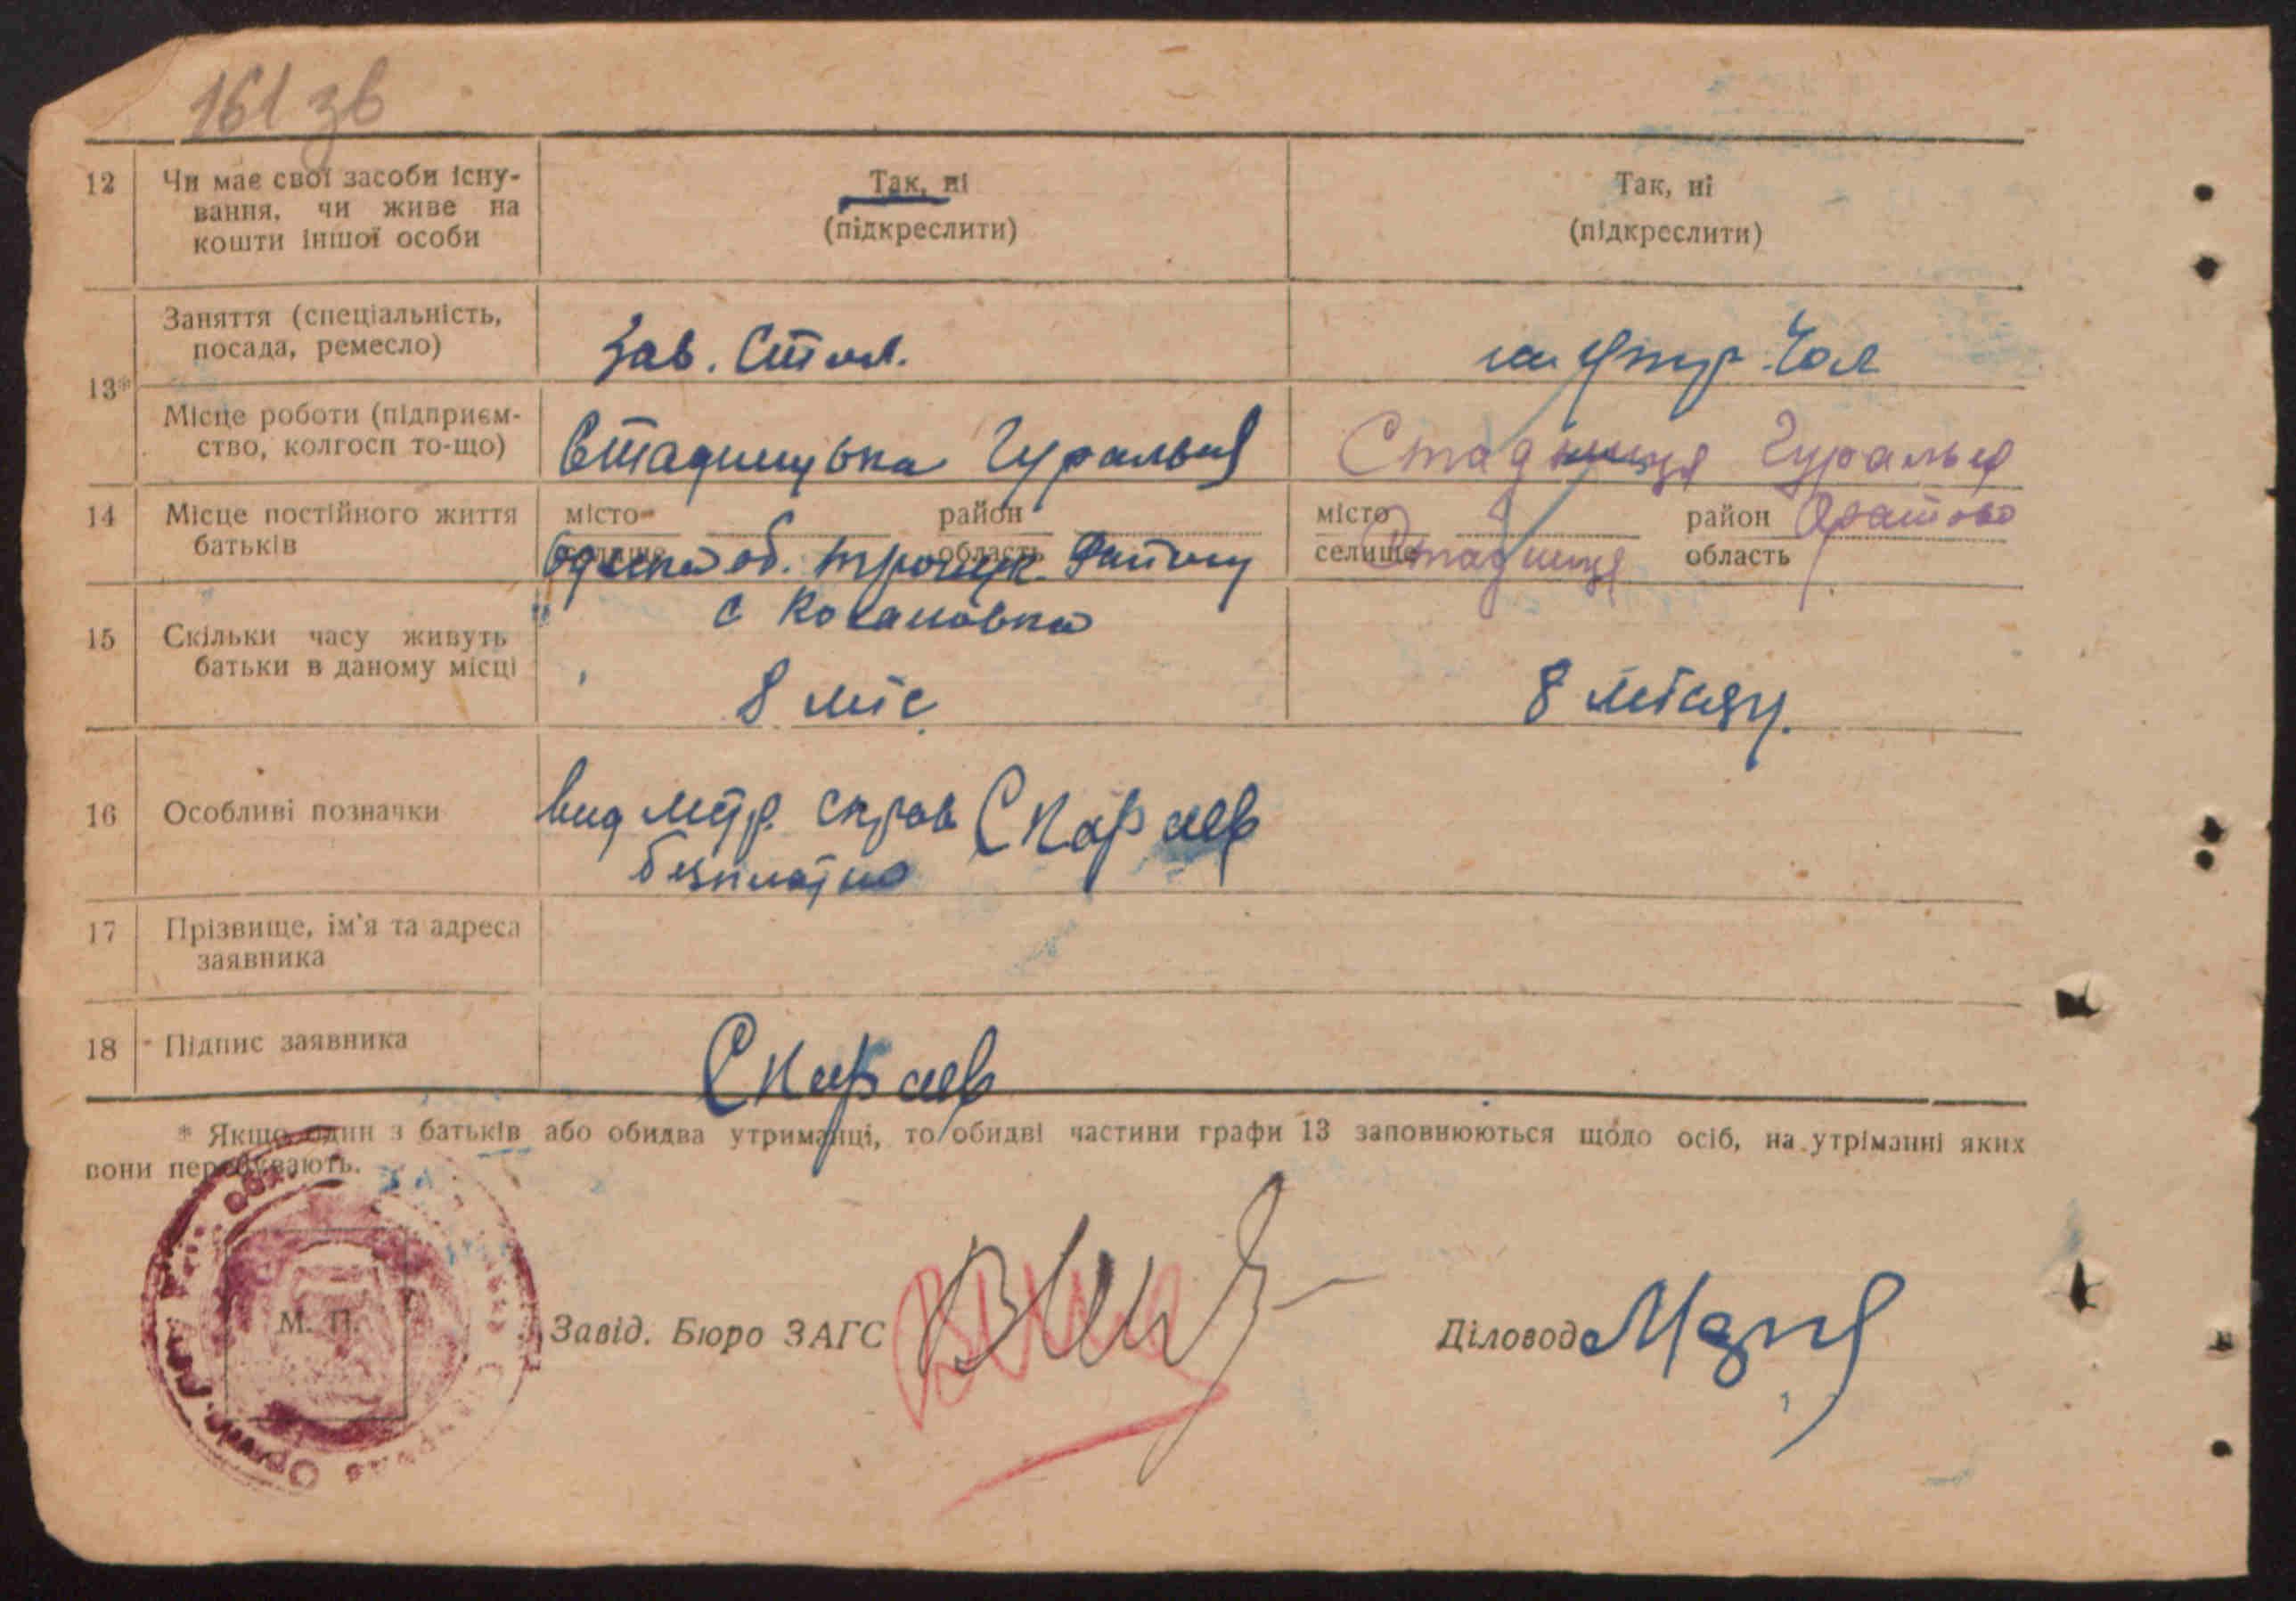 161 зв
12 Чи має свої засоби існу-
вання, чи живе на
кошти іншої особи
Так, ні
(підкреслити)
Так, ні
(підкреслити)
13*
Заняття (спеціальність,
посада, ремесло)
Зав. Стол.
Місце роботи (підприєм-
ство, колгосп то-що)
Стадницька Гуральня
Стадниця Гуральня
14 Місце постійного життя
батьків
місто район
селище область
Одеска об. району
с Кохановка
місто район Оратово
селище Стадниця область
15 Скільки часу живуть
батьки в даному місці
8 міс
8 місяц.
16 Особливі позначки
безплатно
17 Прізвище, ім'я та адреса
заявника
18 Підпис заявника
* Якщо один з батьків або обидва утриманці, то обидві частини графи 13 заповнюються щодо осіб, на утріманні яких
вони перебувають.
М. П.
Завід. Бюро ЗАГС
Діловод